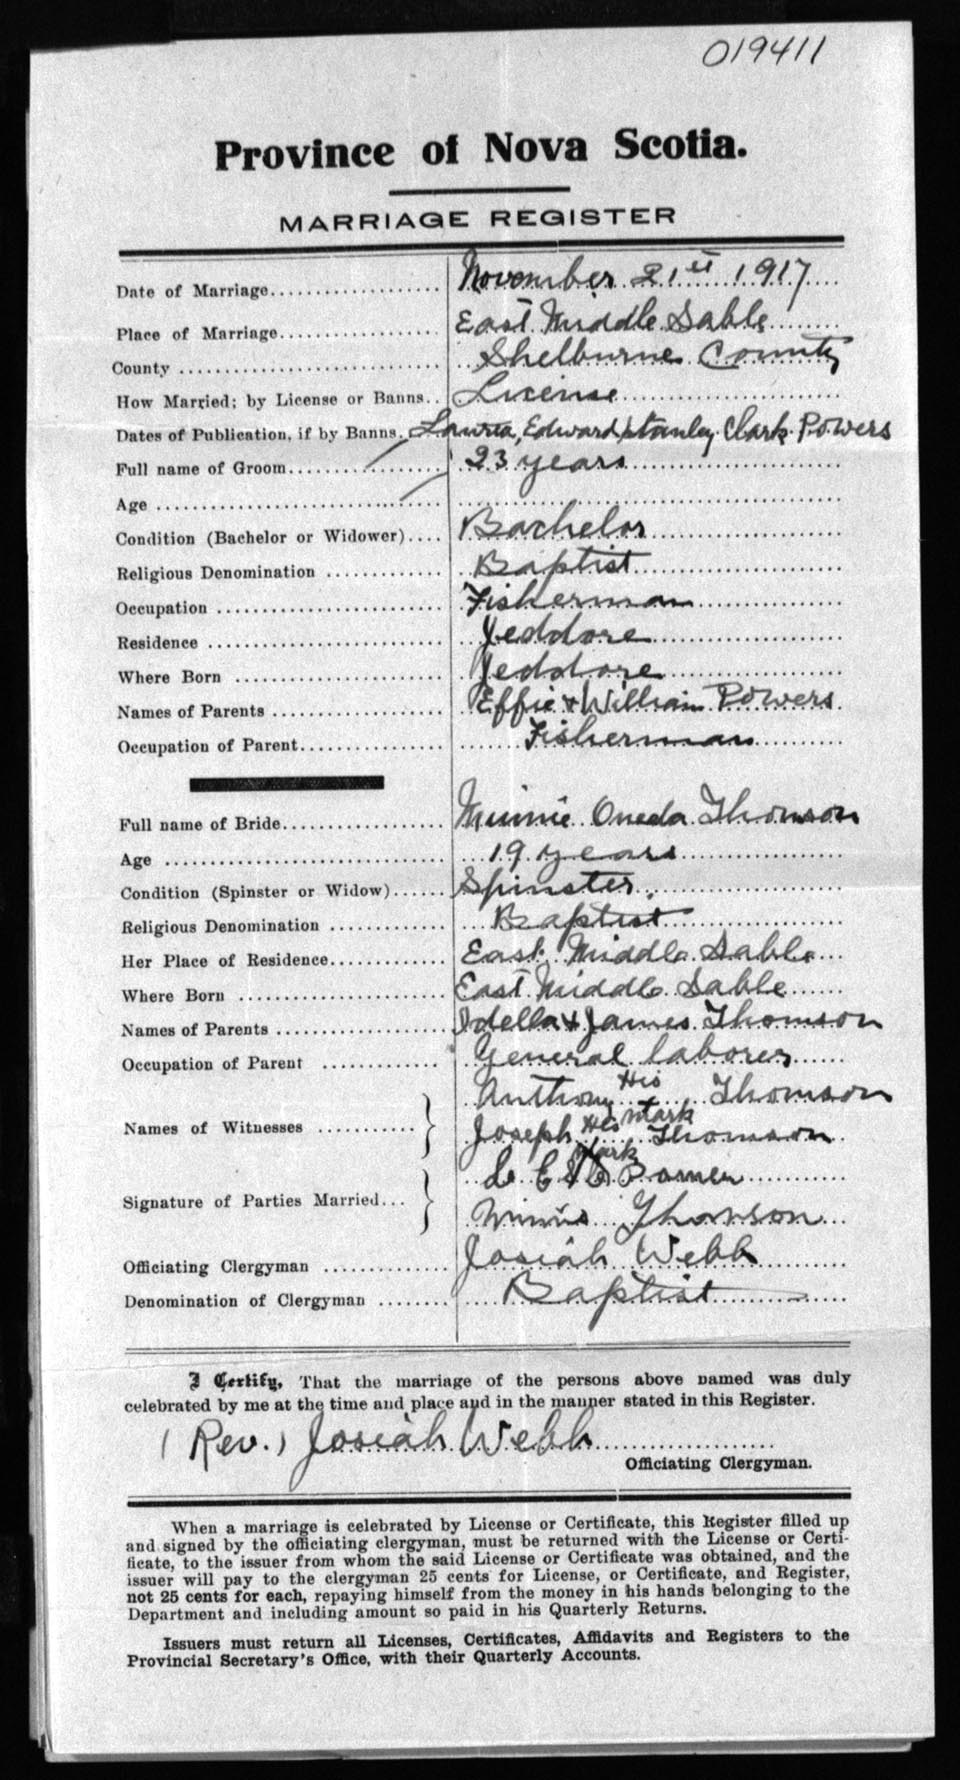 019411
Province of Nova Scotia.
MARRIAGE REGISTER
Date of Marriage.................... November 21st 1917
Place of Marriage................... East Middle Sable
County ............................. Shelburne County
How Married; by License or Banns.. License
Dates of Publication, if by Banns. Edward Stanley Clark Powers
Full name of Groom.................. 23 years
Age ................................
Condition (Bachelor or Widower).... Bachelor
Religious Denomination ............. Baptist
Occupation ......................... Fisherman
Residence .......................... Jeddore
Where Born ......................... Jeddore
Names of Parents ................... Effie & William Powers
Occupation of Parent................ Fisherman
Full name of Bride.................. Minnie Oneda Thomson
Age ................................ 19 years
Condition (Spinster or Widow)...... Spinster
Religious Denomination ............. Baptist
Her Place of Residence............. East Middle Sable
Where Born ......................... East Middle Sable
Names of Parents ................... Idella & James Thomson
Occupation of Parent ............... General laborer
Anthony His Thomson
Mark
Names of Witnesses ........... } Joseph His Thomson
Mark
Signature of Parties Married... }
Thomson
Officiating Clergyman .............. Josiah Webb
Denomination of Clergyman ........ Baptist
I Certify, That the marriage of the persons above named was duly
celebrated by me at the time and place and in the manner stated in this Register.
(Rev.) Josiah Webb
Officiating Clergyman.
When a marriage is celebrated by License or Certificate, this Register filled up
and signed by the officiating clergyman, must be returned with the License or Certi-
ficate, to the issuer from whom the said License or Certificate was obtained, and the
issuer will pay to the clergyman 25 cents for License, or Certificate, and Register,
not 25 cents for each, repaying himself from the money in his hands belonging to the
Department and including amount so paid in his Quarterly Returns.
Issuers must return all Licenses, Certificates, Affidavits and Registers to the
Provincial Secretary's Office, with their Quarterly Accounts.